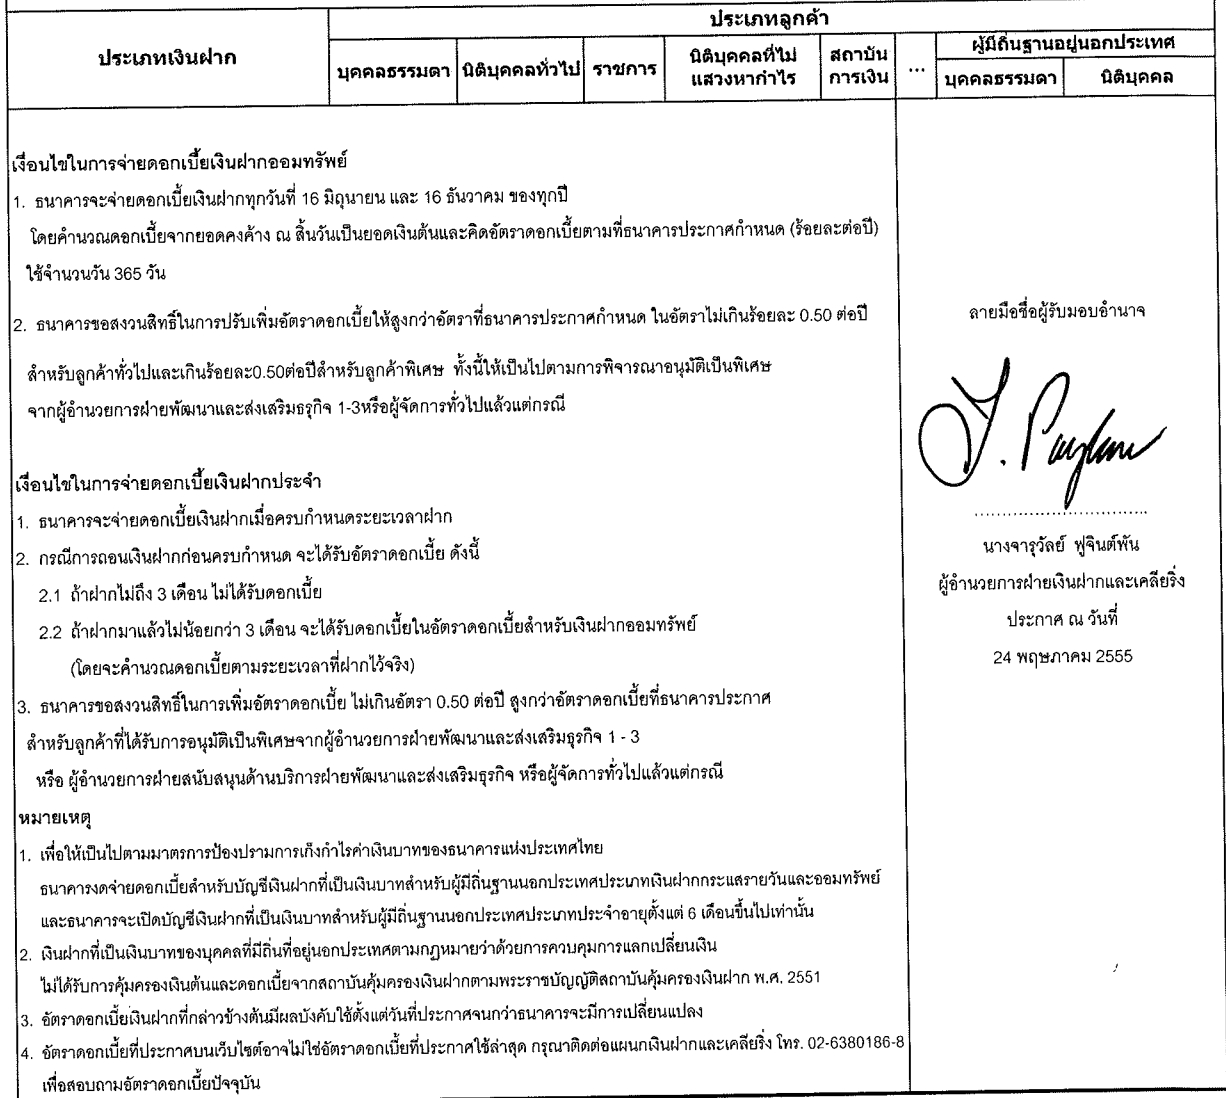 ประเภทลูกค้า
ประเภทเงินฝาก
บุคคลธรรมดา นิติบุคคลทั่วไป ราชการ นิติบุคคลที่ไม่แสวงหากำไร สถาบันการเงิน ... ผู้มีถิ่นฐานอยู่นอกประเทศ
บุคคลธรรมดา นิติบุคคล
เงื่อนไขในการจ่ายดอกเบี้ยเงินฝากออมทรัพย์
1. ธนาคารจะจ่ายดอกเบี้ยเงินฝากทุกวันที่ 16 มิถุนายน และ 16 ธันวาคม ของทุกปี
โดยคำนวณดอกเบี้ยจากยอดคงค้าง ณ สิ้นวันเป็นยอดเงินต้นและคิดอัตราดอกเบี้ยตามที่ธนาคารประกาศกำหนด (ร้อยละต่อปี)
ใช้จำนวนวัน 365 วัน
2. ธนาคารขอสงวนสิทธิ์ในการปรับเพิ่มอัตราดอกเบี้ยให้สูงกว่าอัตราที่ธนาคารประกาศกำหนด ในอัตราไม่เกินร้อยละ 0.50 ต่อปี
สำหรับลูกค้าทั่วไปและเกินร้อยละ0.50ต่อปีสำหรับลูกค้าพิเศษ ทั้งนี้ให้เป็นไปตามการพิจารณาอนุมัติเป็นพิเศษ
จากผู้อำนวยการฝ่ายพัฒนาและส่งเสริมธรุกิจ 1-3หรือผู้จัดการทั่วไปแล้วแต่กรณี
เงื่อนไขในการจ่ายดอกเบี้ยเงินฝากประจำ
1. ธนาคารจะจ่ายดอกเบี้ยเงินฝากเมื่อครบกำหนดระยะเวลาฝาก
2. กรณีการถอนเงินฝากก่อนครบกำหนด จะได้รับอัตราดอกเบี้ย ดังนี้
2.1 ถ้าฝากไม่ถึง 3 เดือน ไม่ได้รับดอกเบี้ย
2.2 ถ้าฝากมาแล้วไม่น้อยกว่า 3 เดือน จะได้รับดอกเบี้ยในอัตราดอกเบี้ยสำหรับเงินฝากออมทรัพย์
(โดยจะคำนวณดอกเบี้ยตามระยะเวลาที่ฝากไว้จริง)
3. ธนาคารขอสงวนสิทธิ์ในการเพิ่มอัตราดอกเบี้ย ไม่เกินอัตรา 0.50 ต่อปี สูงกว่าอัตราดอกเบี้ยที่ธนาคารประกาศ
สำหรับลูกค้าที่ได้รับการอนุมัติเป็นพิเศษจากผู้อำนวยการฝ่ายพัฒนาและส่งเสริมธุรกิจ 1 - 3
หรือ ผู้อำนวยการฝ่ายสนับสนุนด้านบริการฝ่ายพัฒนาและส่งเสริมธุรกิจ หรือผู้จัดการทั่วไปแล้วแต่กรณี
หมายเหตุ
1. เพื่อให้เป็นไปตามมาตรการป้องปรามการเก็งกำไรค่าเงินบาทของธนาคารแห่งประเทศไทย
ธนาคารงดจ่ายดอกเบี้ยสำหรับบัญชีเงินฝากที่เป็นเงินบาทสำหรับผู้มีถิ่นฐานนอกประเทศประเภทเงินฝากกระแสรายวันและออมทรัพย์
และธนาคารจะเปิดบัญชีเงินฝากที่เป็นเงินบาทสำหรับผู้มีถิ่นฐานนอกประเทศประเภทประจำอายุตั้งแต่ 6 เดือนขึ้นไปเท่านั้น
2. เงินฝากที่เป็นเงินบาทของบุคคลที่มีถิ่นที่อยู่นอกประเทศตามกฎหมายว่าด้วยการควบคุมการแลกเปลี่ยนเงิน
ไม่ได้รับการคุ้มครองเงินต้นและดอกเบี้ยจากสถาบันคุ้มครองเงินฝากตามพระราชบัญญัติสถาบันคุ้มครองเงินฝาก พ.ศ. 2551
3. อัตราดอกเบี้ยเงินฝากที่กล่าวข้างต้นมีผลบังคับใช้ตั้งแต่วันที่ประกาศจนกว่าธนาคารจะมีการเปลี่ยนแปลง
4. อัตราดอกเบี้ยที่ประกาศบนเว็บไซต์อาจไม่ใช่อัตราดอกเบี้ยที่ประกาศใช้ล่าสุด กรุณาติดต่อแผนกเงินฝากและเคลียริ่ง โทร. 02-6380186-8
เพื่อสอบถามอัตราดอกเบี้ยปัจจุบัน
ลายมือชื่อผู้รับมอบอำนาจ
นางจารุวัลย์ ฟูจินต์พัน
ผู้อำนวยการฝ่ายเงินฝากและเคลียริ่ง
ประกาศ ณ วันที่
24 พฤษภาคม 2555